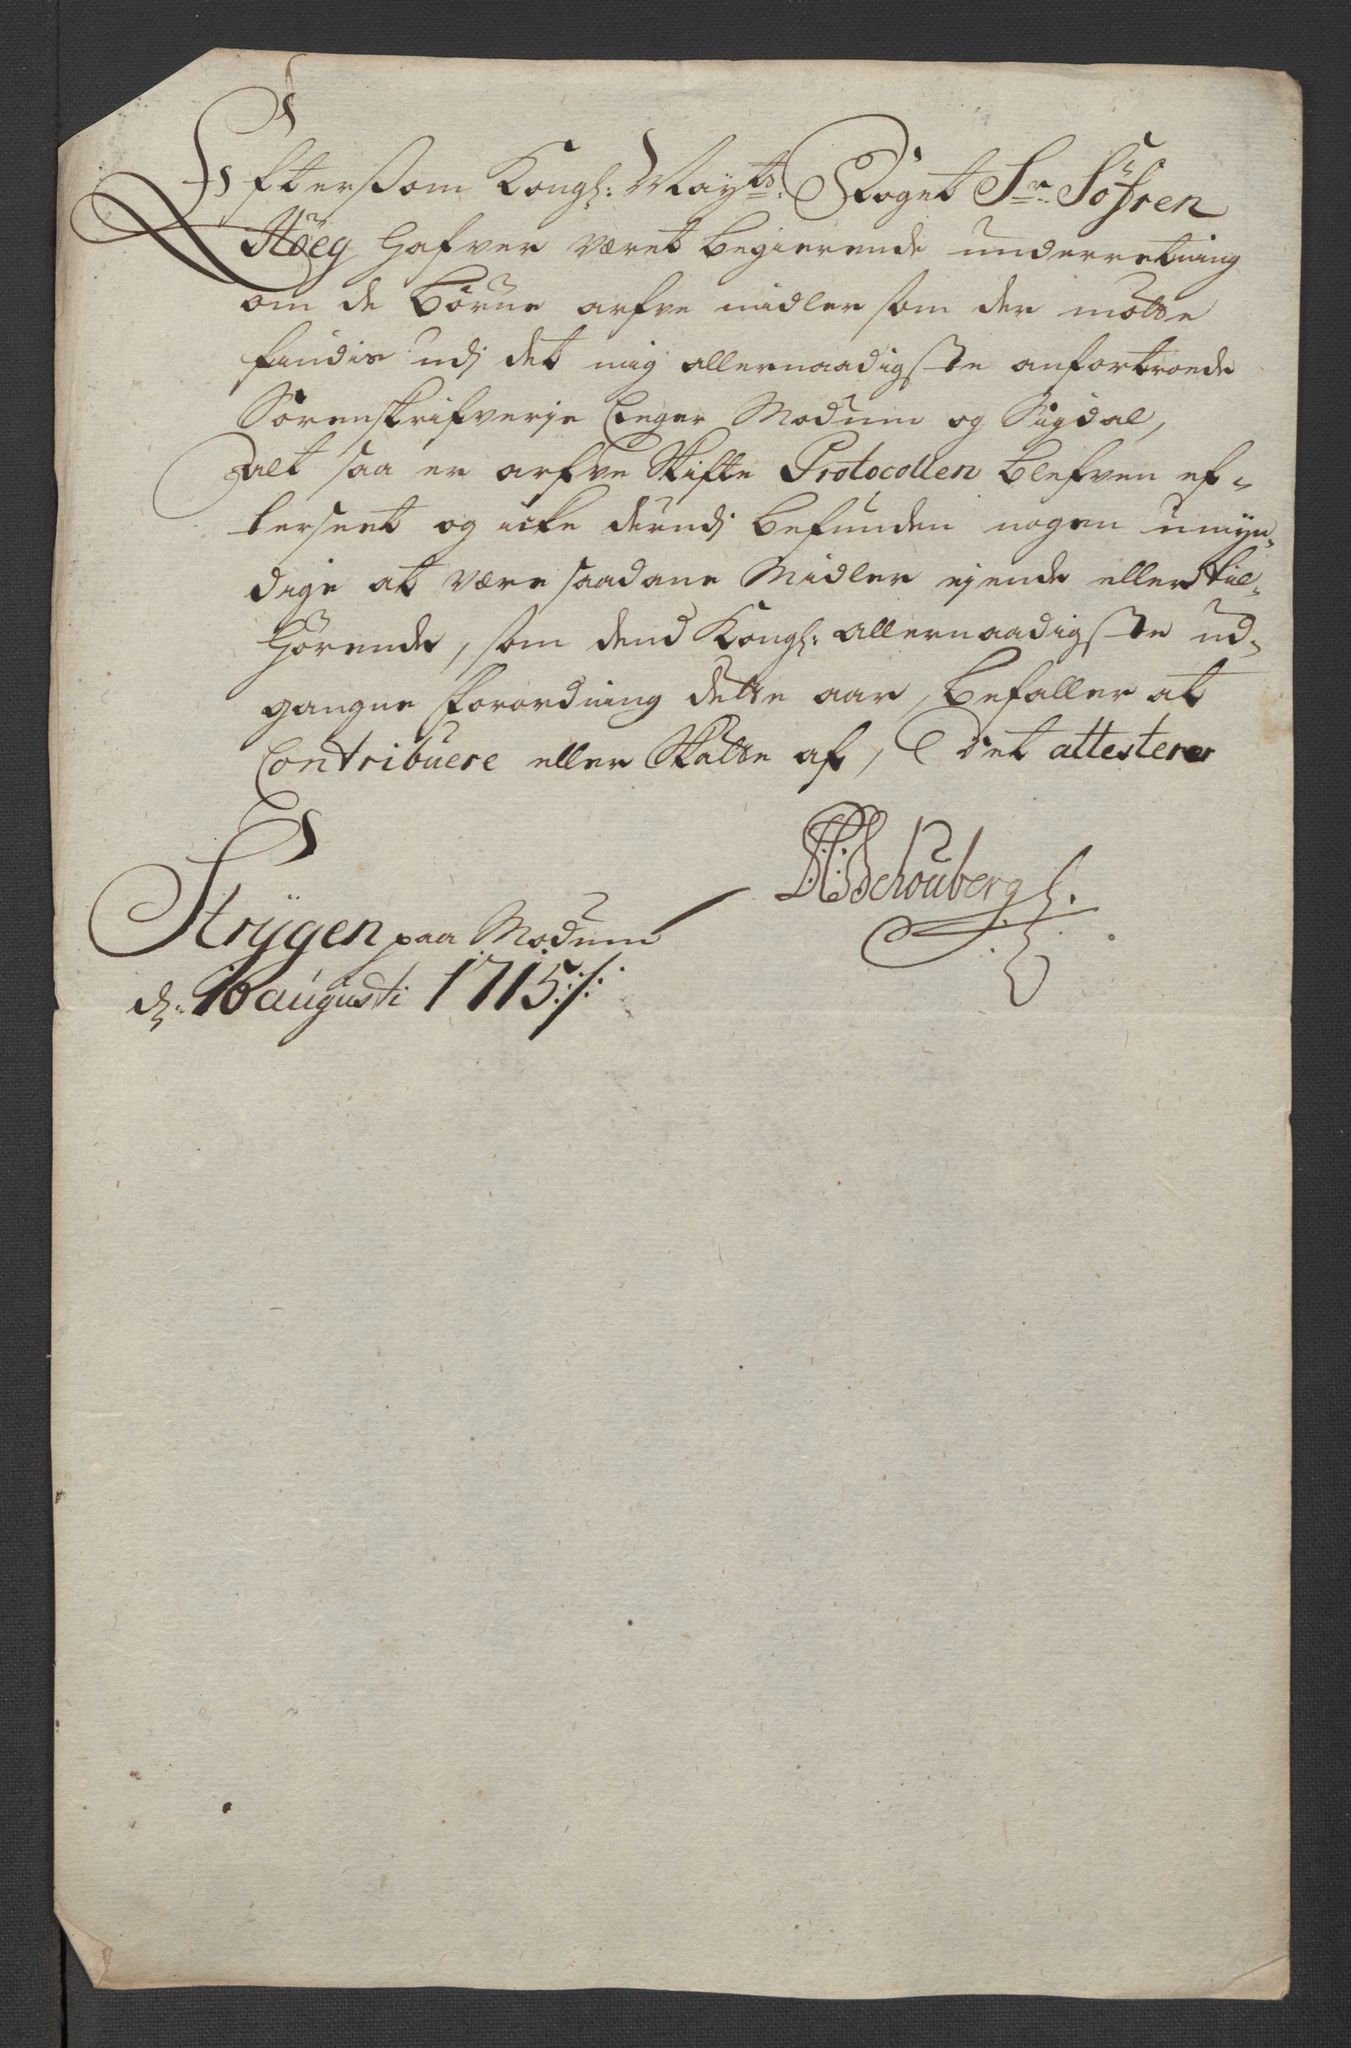 Eftersom Kongl: Mayts: Foget Sr. Söfren
Höeg hafver været begierende underretning
om de börne arfve midler som der motte
findis udj det mig allernaadigste anfortroede
Sorenskrifverje Eeger Modum og Sigdal,
Dalt saa er arfve Skifte Protocollen blefven ef-
terseet og icke derudj befunden nogen umyn-
dige at være saadane Midler ejende eller til-
hörende, som dend Kongl: allernaadigste ud-
gangne forordning dette aar, befaller at
Contribuere eller Skatte af, Det attesterer
HSchouberg
Strÿgen paa Modum
d: 16 augusti 1715:/: